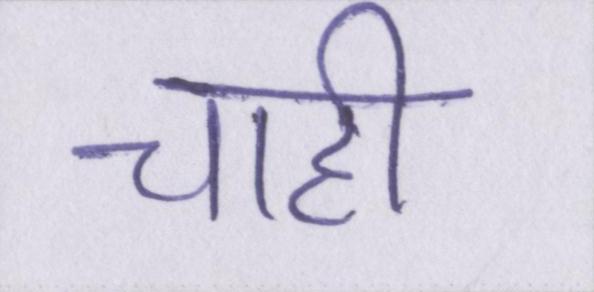 चाही